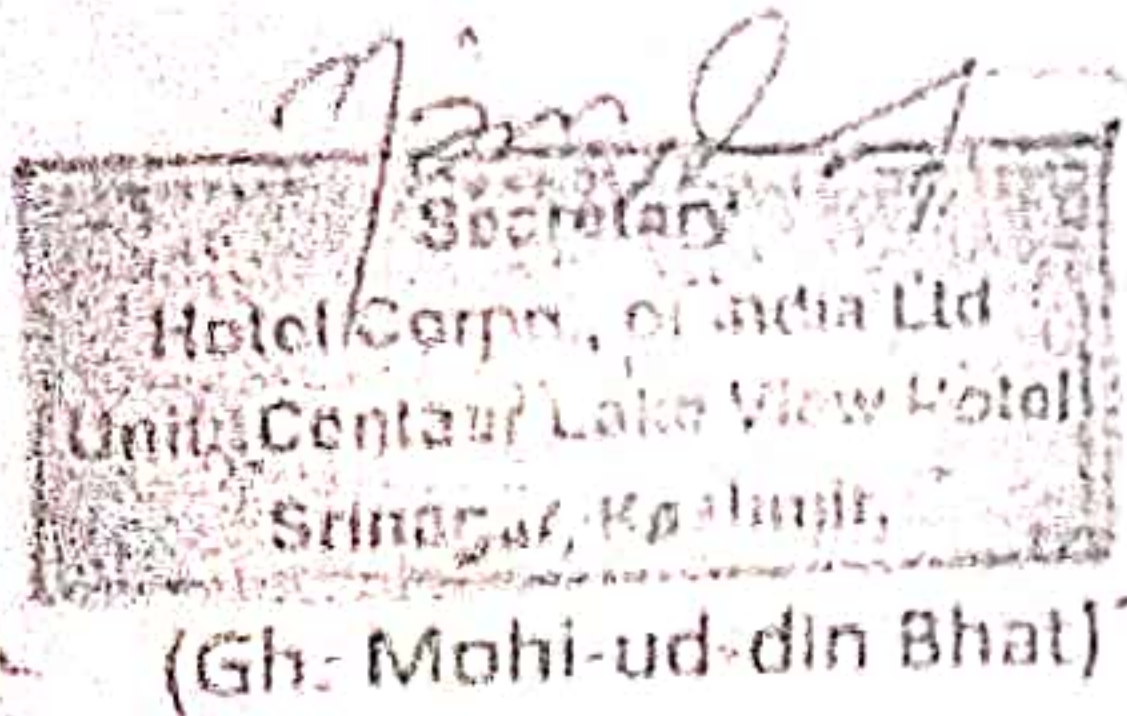 Secretary
Hotel Corpn., of India Ltd
Unit: Centaur Lake View Hotel
Srinagar, Kashmir,
(Gh: Mohi-ud-din Bhat)